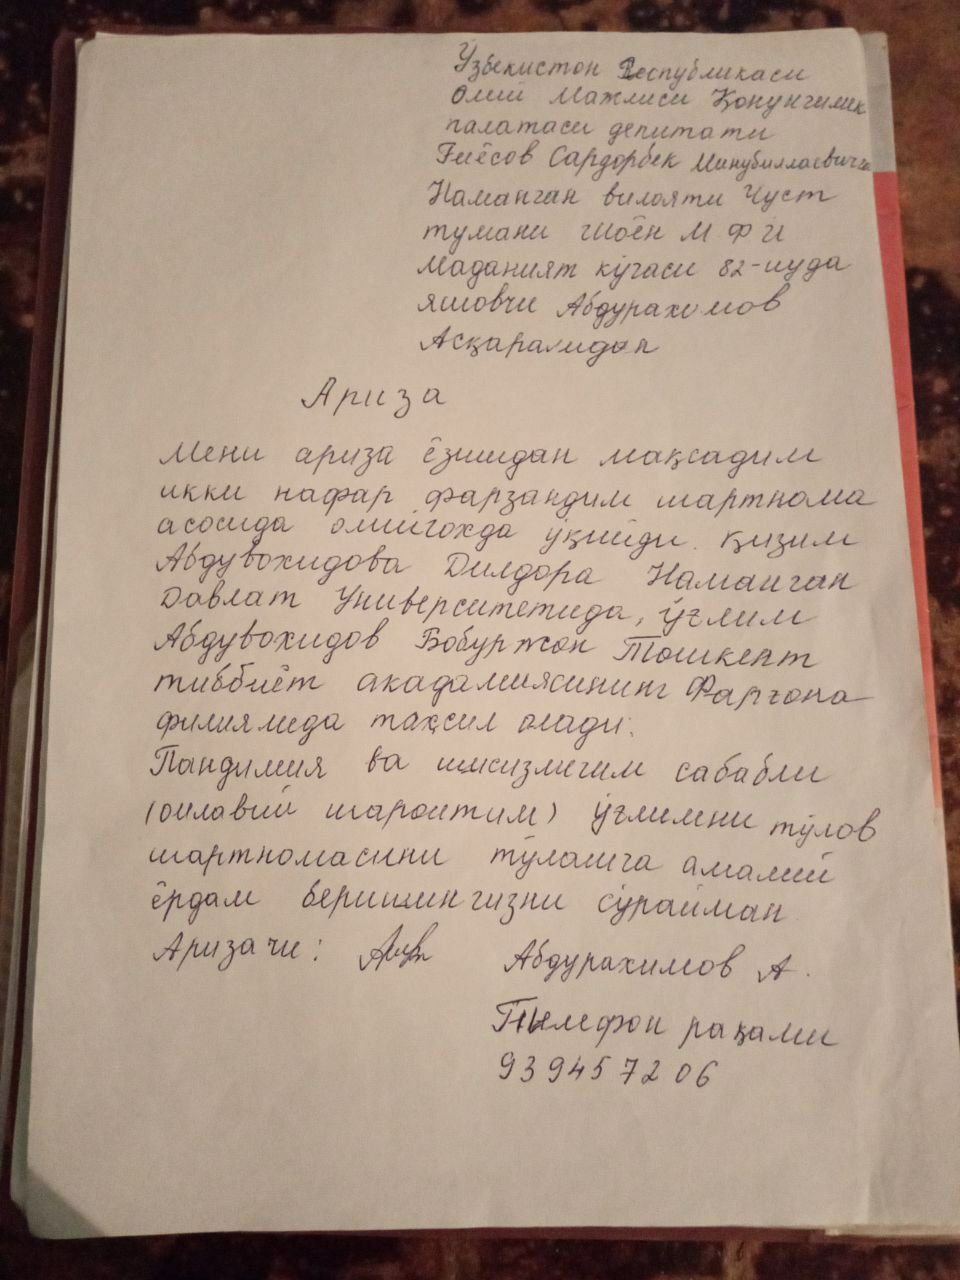 Ўзбекистон Республикаси
Олий Мажлиси Қонунчилик
палатаси депитати
Ғиёсов Сардорбек
Наманган вилояти Чуст
тумани Шоён М Ф Й
Маданият кўчаси 82-уйда
яшовчи Абдурахимов
Асқаралидан
Ариза
Мени ариза ёзишдан мақсадим
икки нафар фарзандим шартнома
асосида олийгохда ўқийди. Қизим
Абдувохидова Дилдора Наманган
Давлат Университетида, ўғлим
Абдувохидов Бобуржон Тошкент
тиббиёт акадамиясининг Фарғона
филиялида таҳсил олади.
Пандимия ва ишсизлигим сабабли
(оилавий шароитим) ўғлимни тўлов
шартномасини тўлашга амалий
ёрдам беришингизни сўрайман
Аризачи: Абдурахимов А.
Тилефон рақами
939457206